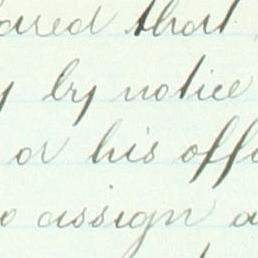 ared that
y by notice
or his offi
o assign a